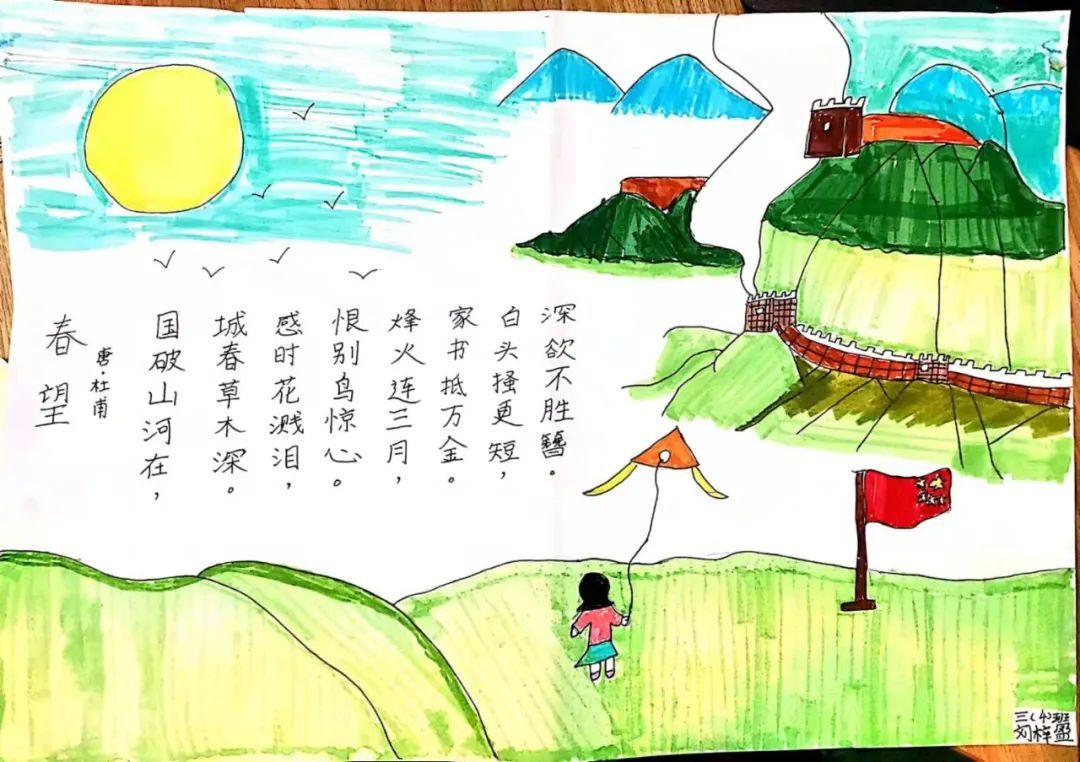 春望
唐·杜甫
国破山河在，
城春草木深。
感时花溅泪，
恨别鸟惊心。
烽火连三月，
家书抵万金。
白头搔更短，
深欲不胜簪。
三(4)班
刘梓盈